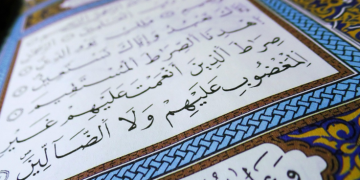 نَعْبُدُ وَإِيَّاكَ نَسْتَعِينُ
هْدِنَا الصِّرَاطَ الْمُسْتَقِيمَ
صِرَاطَ الَّذِينَ أَنْعَمْتَ عَلَيْهِمْ غَيْرِ
الْمَغْضُوبِ عَلَيْهِمْ وَلَا الضَّالِّينَ